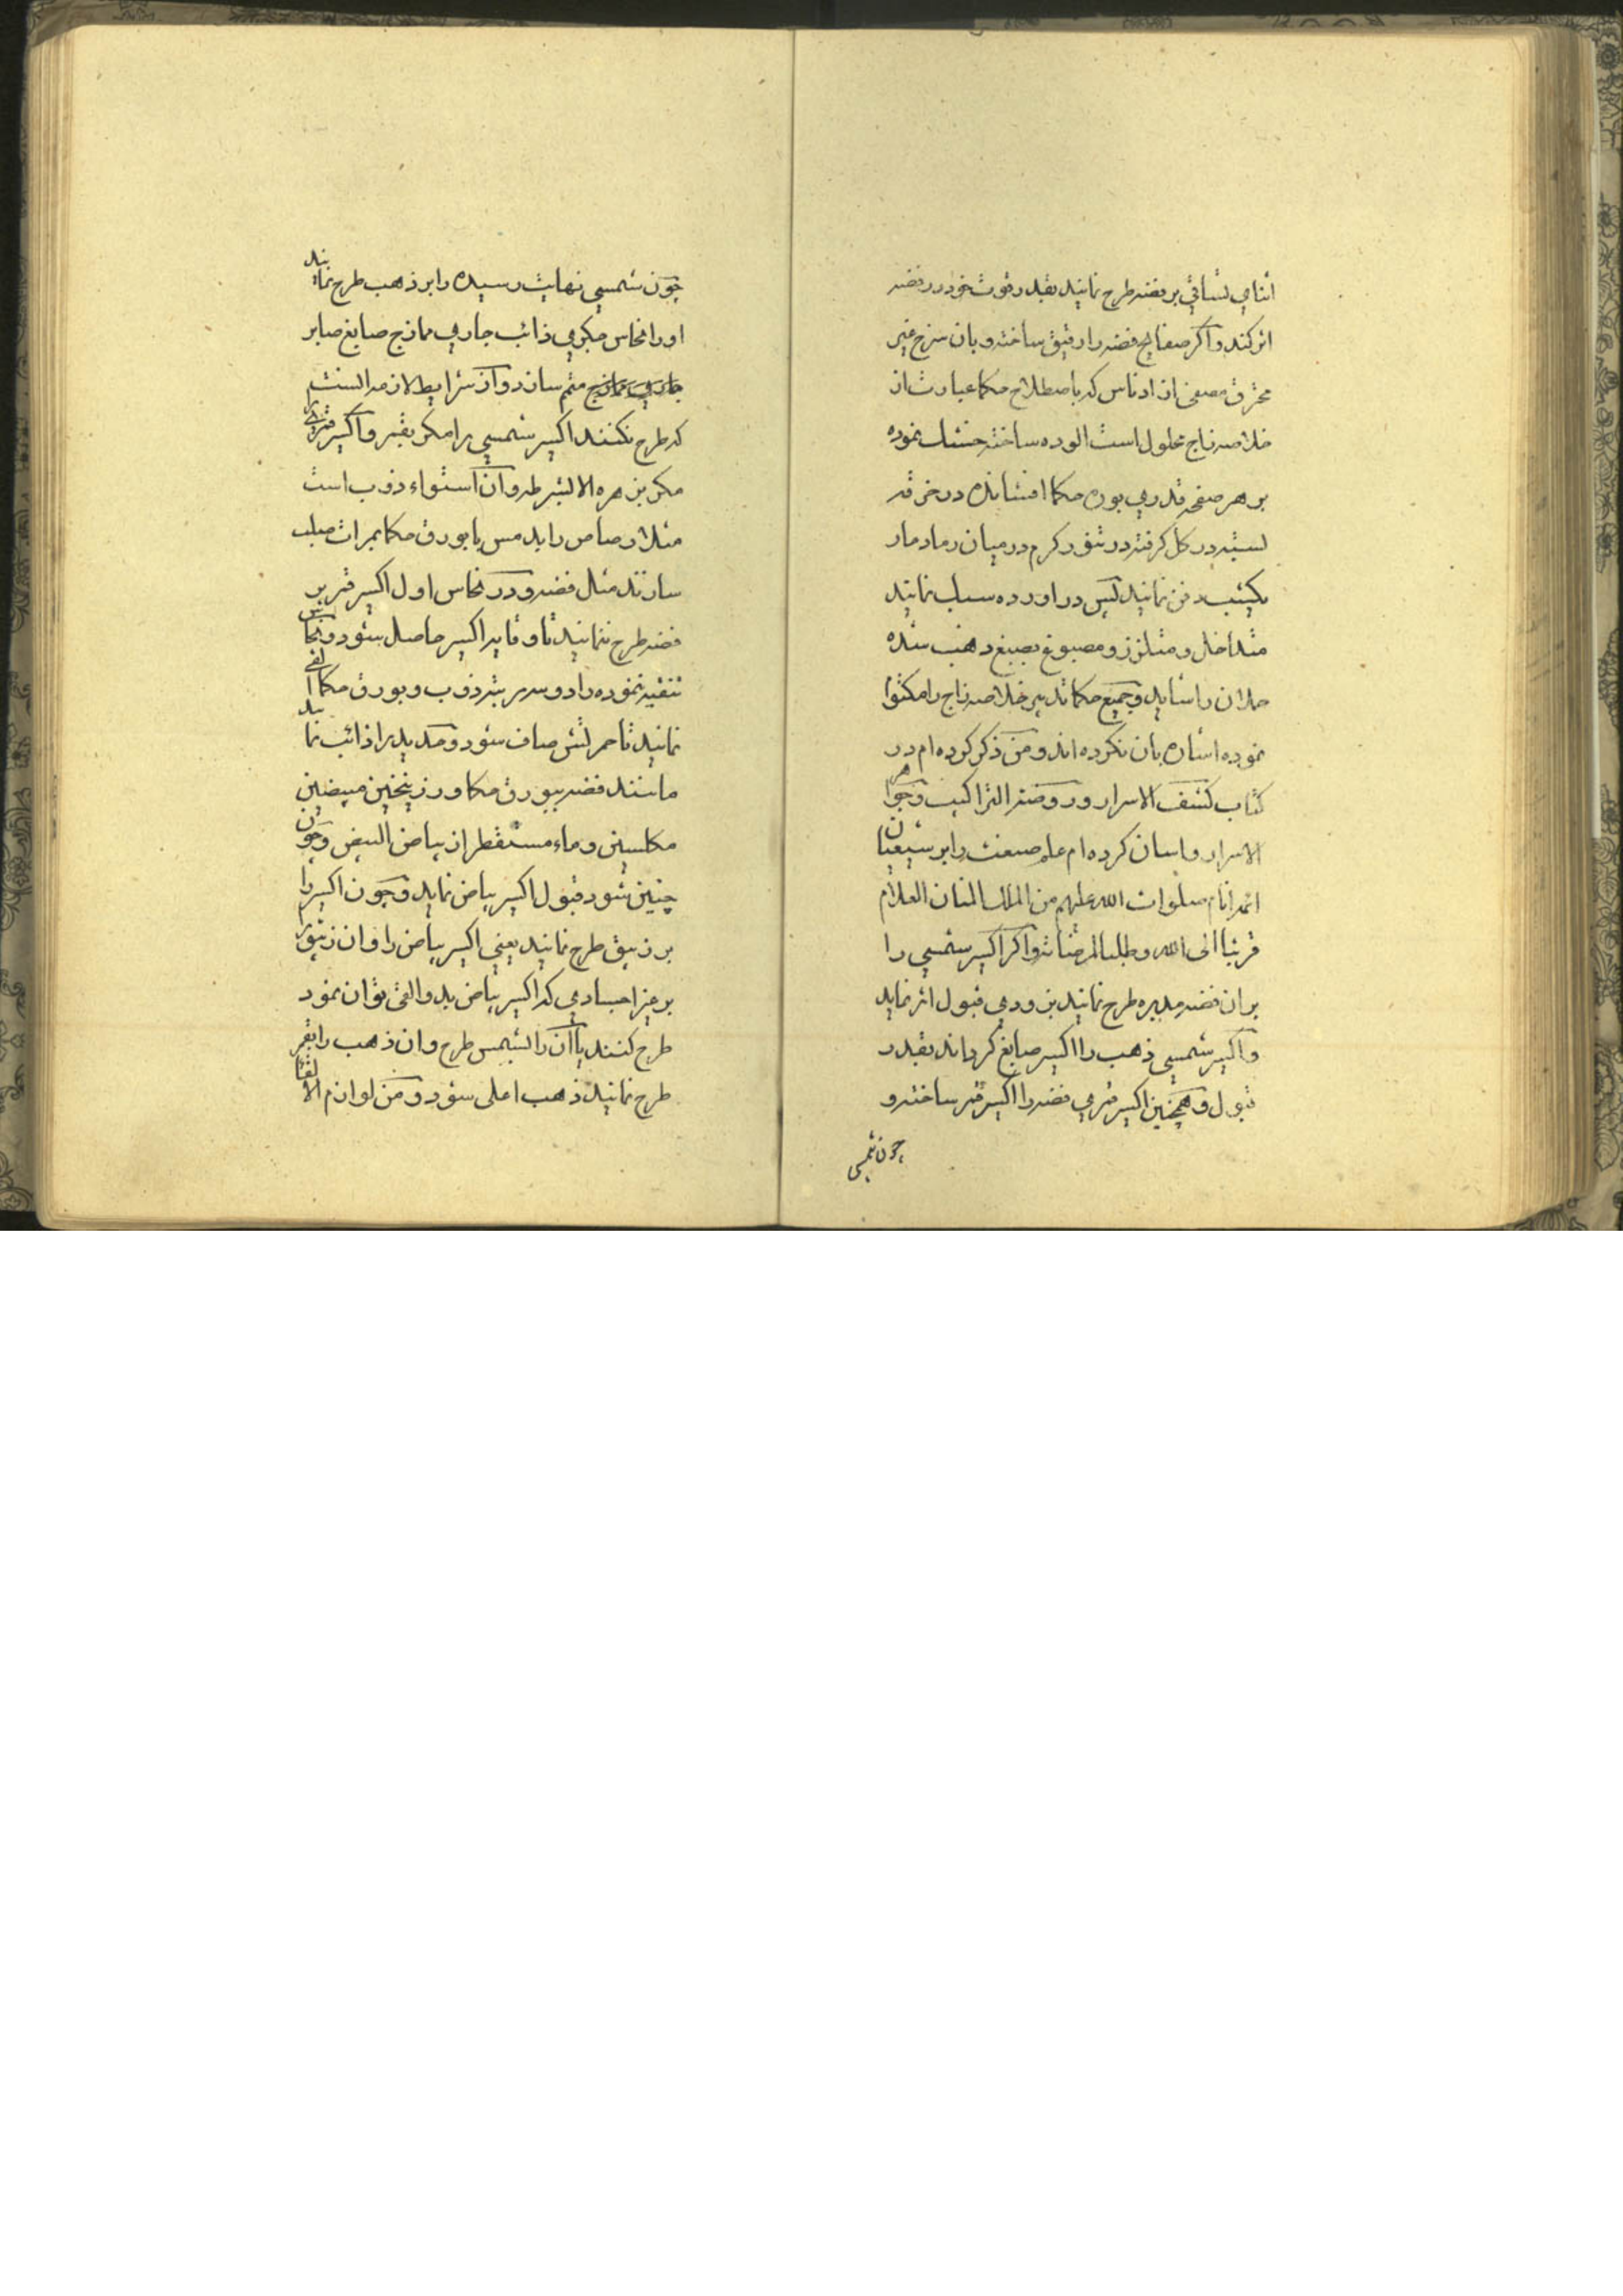 اثنای نباتی بر فضه طرح نمایند بقدر قوت خود در فضه
اثر کند و اگر صفایح فضه را رقیق ساخته و بان سرخ غیر
محترق مصفی از ادناس که باصطلاح حکما عبارت از
خلاصه زاج محلول است الوده ساخته خشک نموده
بر هر صفحه قدری بوره حکما افشانده در خرقه
بسته در کل کرفته در تنور کرم در میان رماد مار
یکشب دفن نمایند پس در اورده سبک نمایند
متداخل و متلزز و مصبوغ بصبغ ذهب شده
حملان را شاید و جمیع حکما تدبیر خلاصه زاج را مکتوم
نموده اشاره بان نکرده اند و من ذکر کرده ام در
کتاب کشف الاسرار و روضة التراکیب و جواهر
الاسرار و اسان کرده ام علم صنعت را بر شیعیان
ائمه انام صلوات الله علیهم من الملک المنان العلام
قربتا الی الله و طلبا لمرضاته و اکر اکسیر شمسی را
بر ان فضه مدبره طرح نمایند بزودی قبول اثر نماید
و اکسیر شمسی ذهب را اکسیر صابغ کرداند بقدر
قبول و همچنین اکسیر قمری فضه را اکسیر قمر ساخته و
چون شمسی
چون شمسی نهایت رسیده را بر ذهب طرح نمایند
او را نحاس حکمی ذائب جاری ممازج صابغ صابر
متمم سازد و از شرایط لازمه السنت
که طرح نکنند اکسیر شمسی را مکر بقمر و اکسیر قمری را
مکر بزهره الا بشرطه و آن استواء ذوب است
مثلا رصاص را باید مس با بورق حکما بمرات صلب
سازند مثال فضه و در نحاس اول اکسیر قمر بر
فضه طرح نمایند تا وقایه اکسیر حاصل شود و نحاس
تنقیه نموده را دو سه مرتبه ذوب و بورق حکما القی
نمایند تا حمرتش صاف شود و حدید را ذائب نمایند
مانند فضه ببورق حکما و زرنیخین مبیضین
مکلسین و ماء مستقطر از بیاض البیض و چون
چنین شود قبول اکسیر بیاض نماید و چون اکسیر را
بر زیبق طرح نمایند یعنی اکسیر بیاض را و ان زیبق را
بر غیر اجسادی که اکسیر بیاض بدو القی توان نمود
طرح کنند یا آن را بشمس طرح و ان ذهب را بقمر
طرح نمایند ذهب اعلی شود و من لوازم الالقا